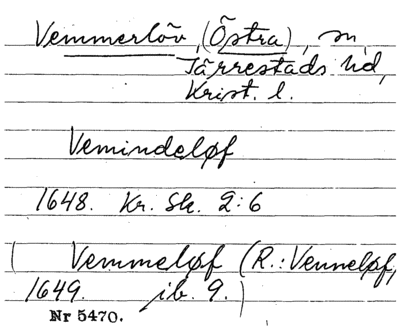 Vemmerlöv, (Östra), sn,
Järrestads hd,
Krist. l.
Vemindeløf
1648. Kr. Sk. 2:6
(Vemmeløf (R.: Venneløf,
1649. ib. 9.)
Nr 5470.